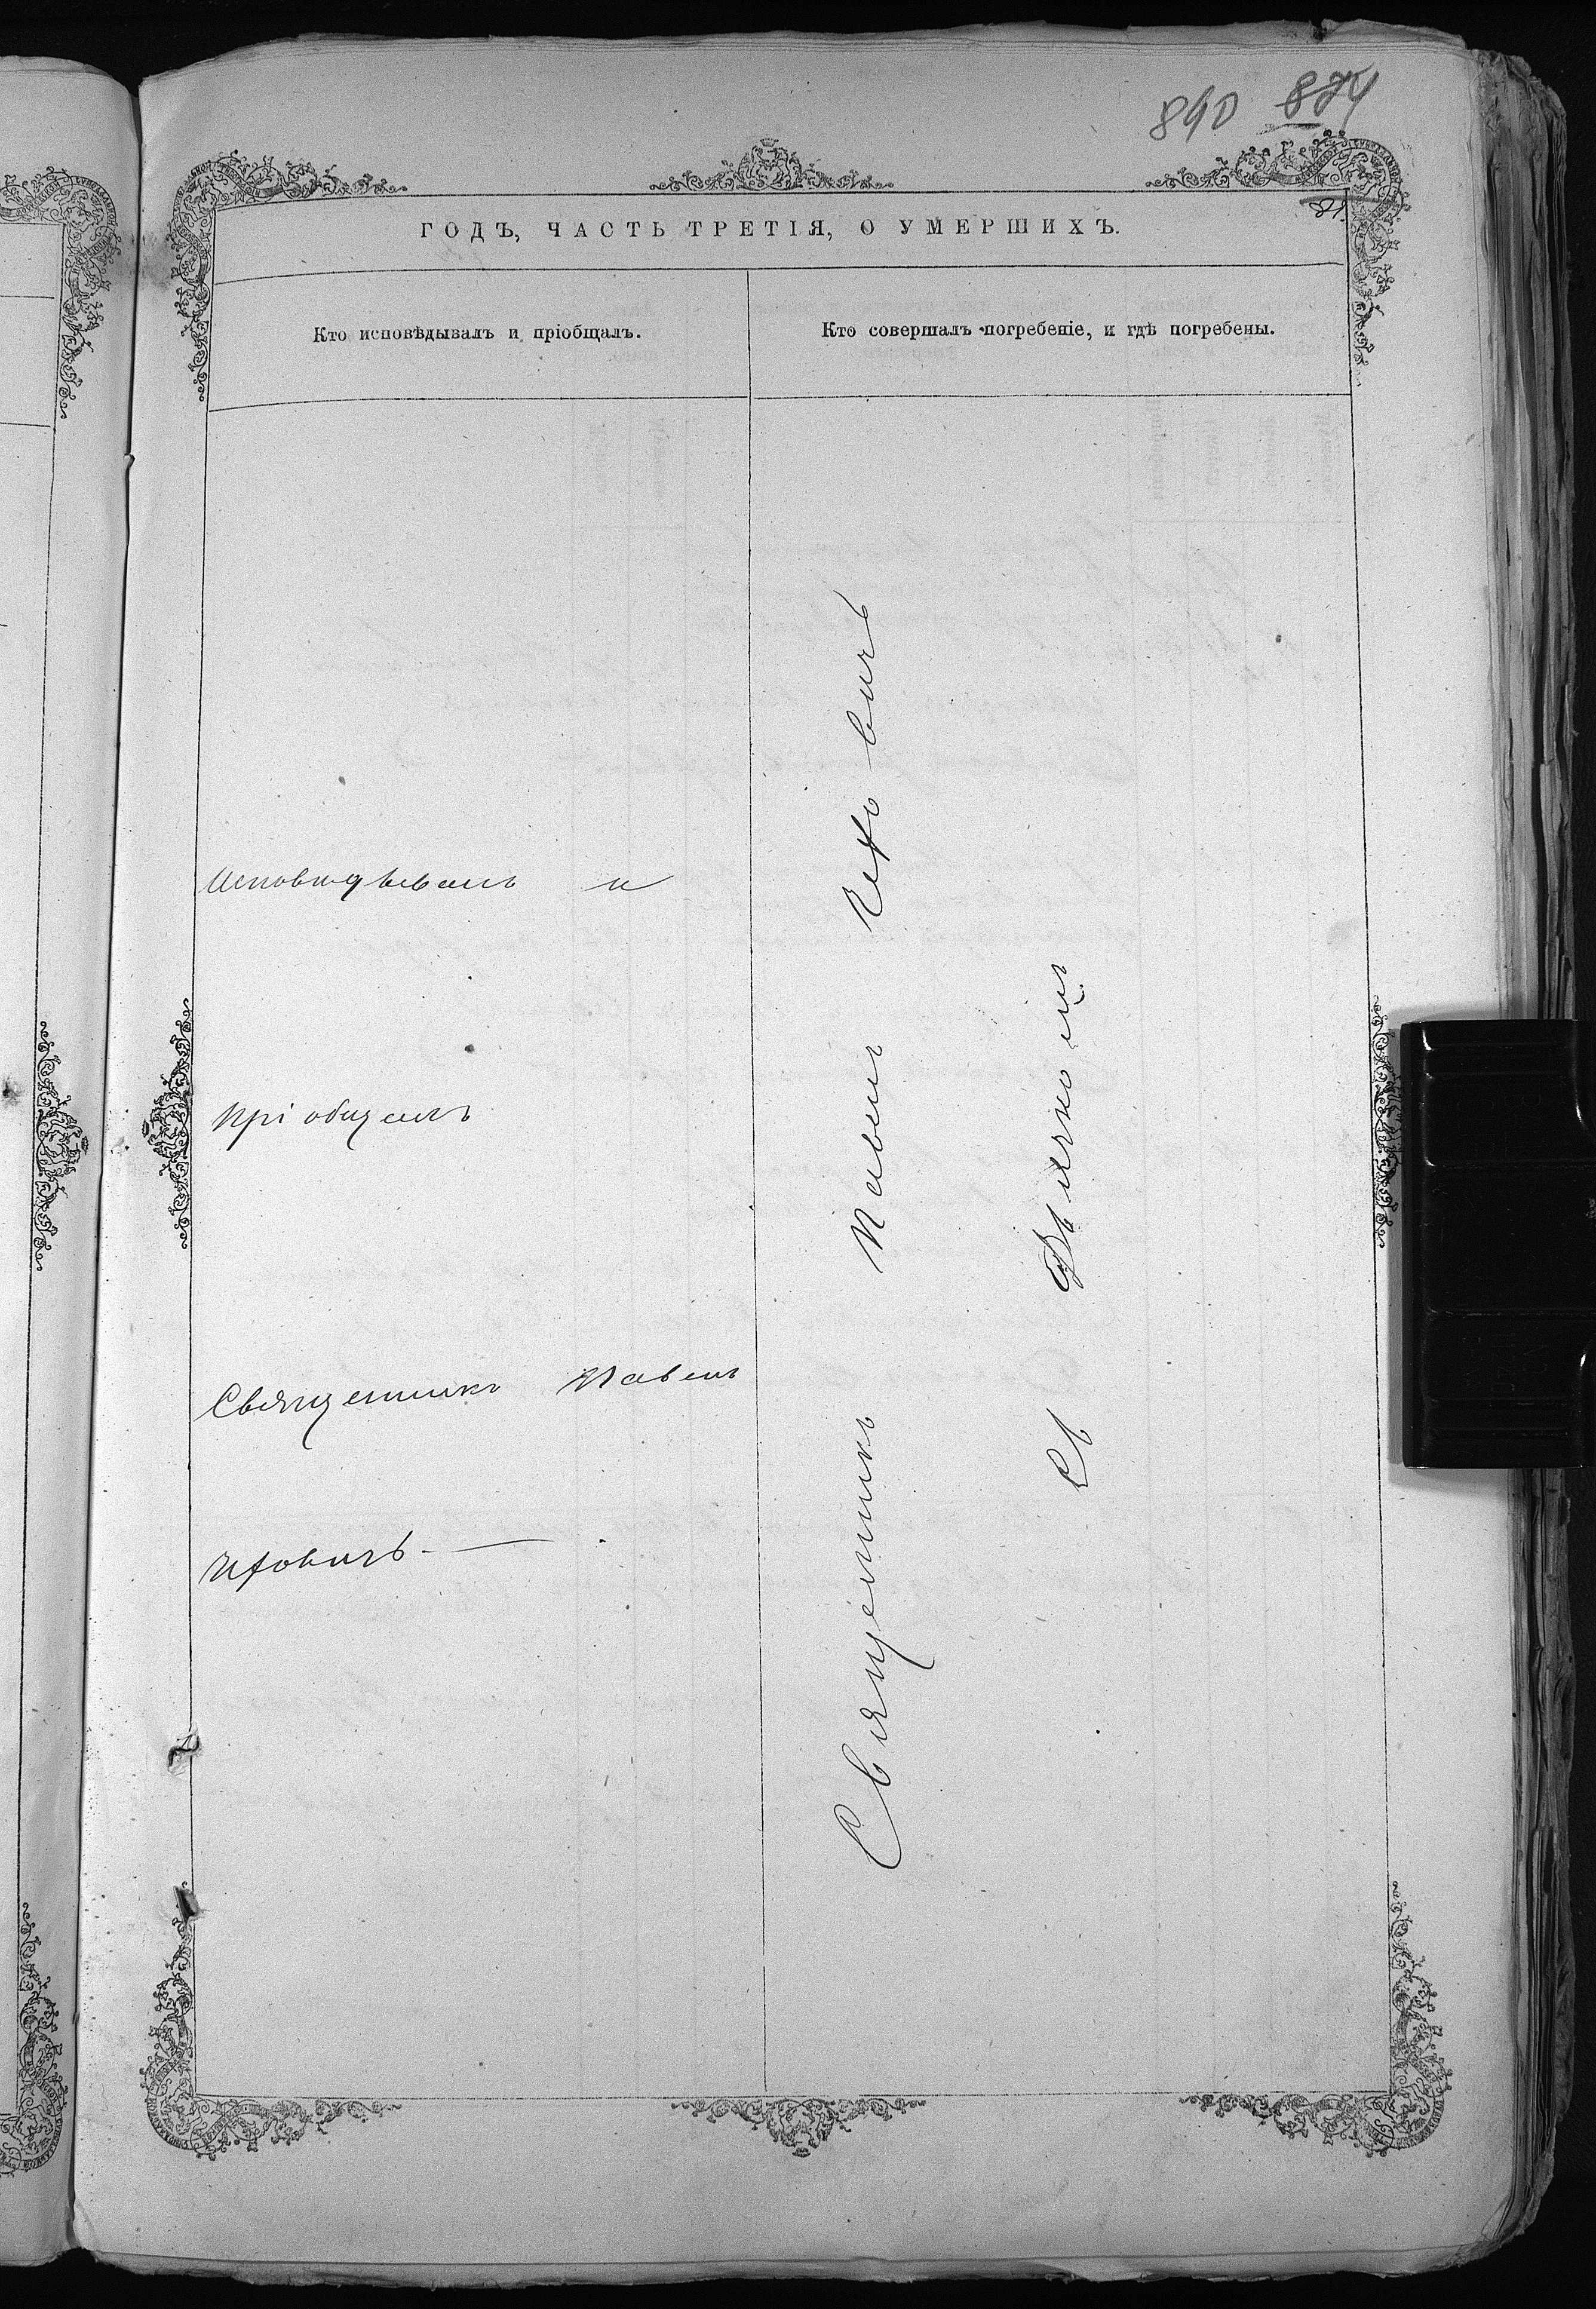 840 874
81
ГОДЪ, ЧАСТЬ ТРЕТІЯ, О УМЕРШИХЪ.
Кто исповѣдывалъ и пріобщалъ.
Кто совершалъ погребеніе, и гдѣ погребены.
Исповѣдывалъ и
пріобщалъ
Священникъ Павелъ
Священникъ Павелъ